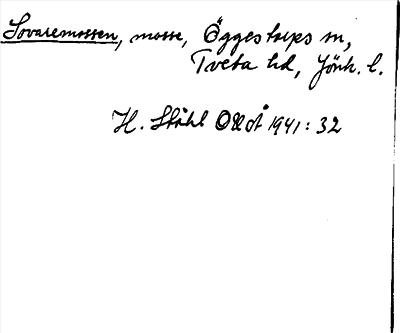 Sovaremossen, mosse, Öggestorps sn,
Tveta hd, Jönk. l.
H. Ståhl OUoÅ 1941: 32